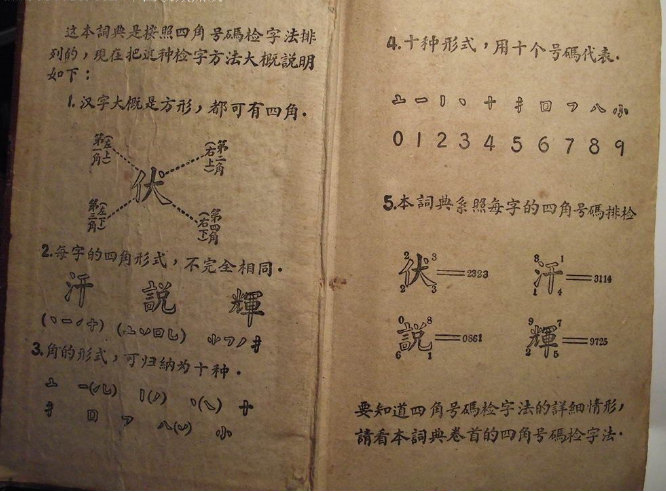 这本詞典是按照四角号碼检字法排
列的，現在把这种检字方法大概説明
如下：
1. 汉字大概是方形，都可有四角．
第一角（左上）
第二角（右上）
伏
第三角（左下）
第四角（右下）
2. 每字的四角形式，不完全相同．
汗 説 輝
3. 角的形式，可归納为十种．
4. 十种形式，用十个号碼代表．
0 1 2 3 4 5 6 7 8 9
5. 本詞典系照每字的四角号碼排检
2 3
伏 2323
2 3
3 1
汗 3114
1 4
0 8
説 0861
6 1
9 7
輝 9725
2 5
要知道四角号碼检字法的詳細情形，
請看本詞典卷首的四角号碼检字法．